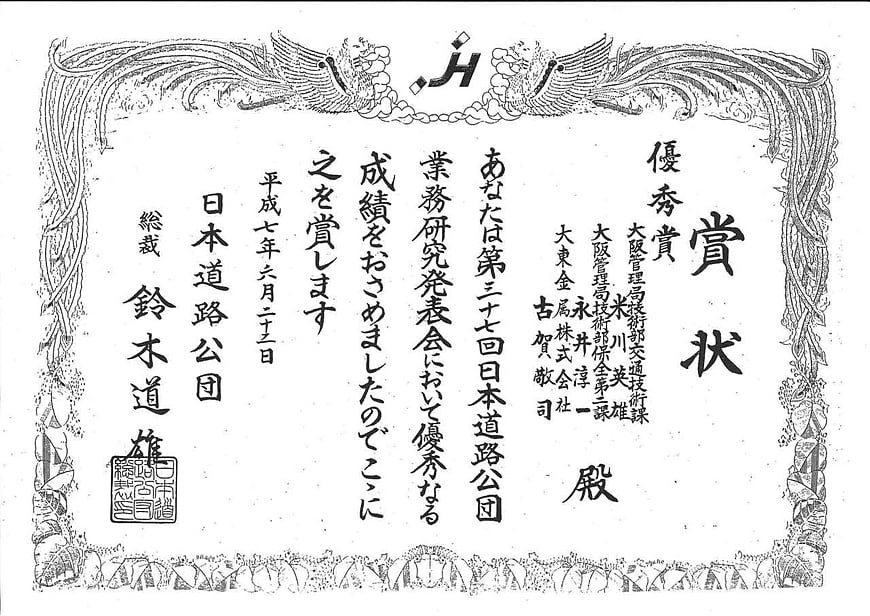 JH
賞状
優秀賞
大阪管理局技術部交通技術課
米川英雄
大阪管理局技術部保全第二課
永井淳一
大東金属株式会社
古賀敬司
殿
あなたは第三十七回日本道路公団
業務研究発表会において優秀なる
成績をおさめましたのでここに
之を賞します
平成七年六月二十二日
日本道路公団
総裁 鈴木道雄
日本道
路公団
総裁印